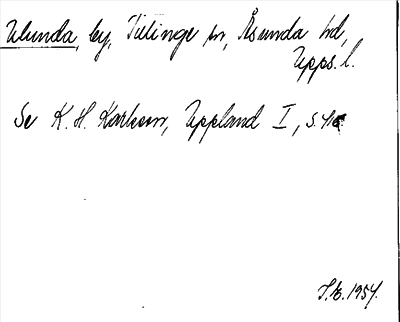 Ulunda, by, Tillinge sn, Åsunda hd,
Upps. l.
Se K. H. Karlsson, Uppland I, s.
1954.